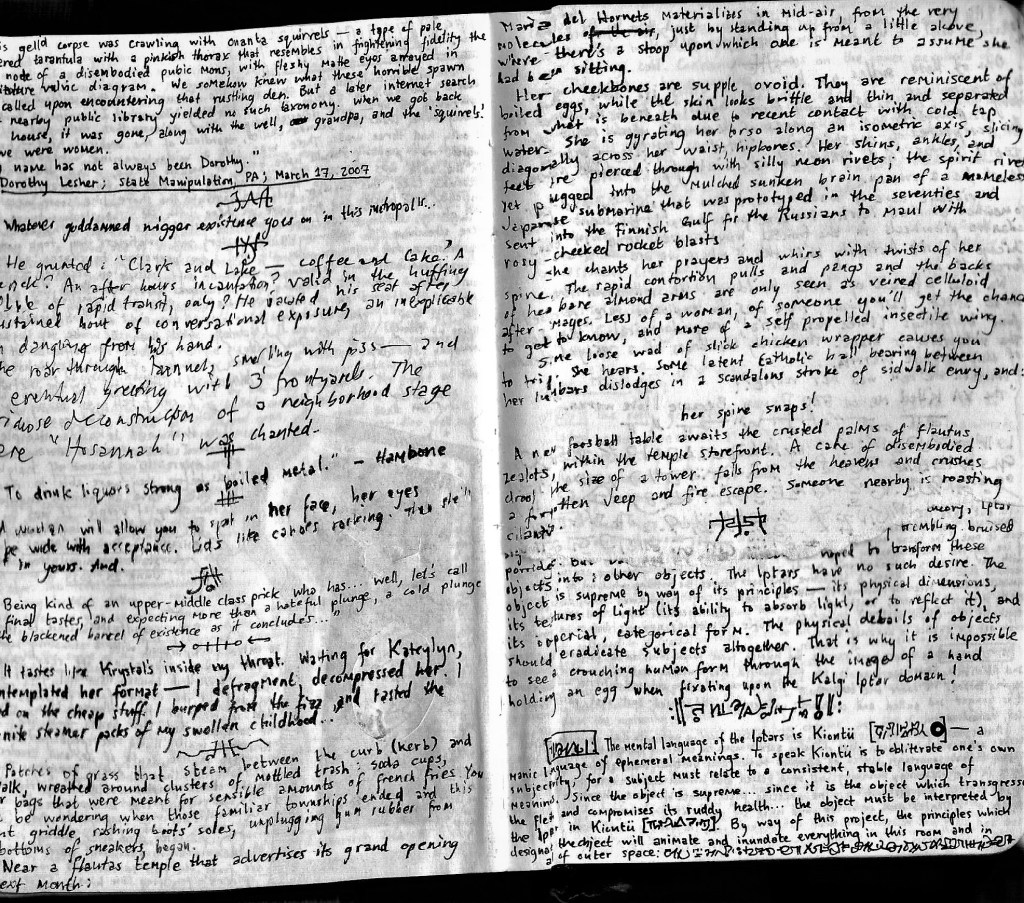 is gell'd corpse was crawling with Onanta squirrels — a type of pale
ered tarantula with a pinkish thorax that resembles in frightening fidelity the
node of a disembodied pubic mons, with fleshy matte eyes arrayed in
vulvic diagram. We somehow knew what these horrible spawn
called upon encountering that rustling den. But a later internet search
nearby public library yielded no such taxonomy. When we got back
house, it was gone, along with the well, grandpa, and the 'squirrels'.
we were women.
name has not always been Dorothy."
Dorothy Lesher; State Manipulation, PA; March 17, 2007
Whatever goddamned nigger existence goes on in this metropolis...
He grunted: "Clark and Lake — coffee and Cake." A
? An after hours incantation? valid in the huffing
of rapid transit, only? He vacated his seat after
ustained bout of conversational exposure, an inexplicable
dangling from his hand.
he roar through tunnels smelling with piss — and
eventual greeting with 3 frontyards. The
deconstruction of a neighborhood stage
ere "Hosannah" was chanted.
To drink liquors strong as boiled metal." — Hambone
woman will allow you to spit in her face, her eyes
pe wide with acceptance. Lids like canoes rocking.
in yours. And.
Being kind of an upper-middle class prick who has... well, let's call
final tastes, and expecting more than a hateful plunge, a cold plunge
the blackened barrel of existence as it concludes..."
It tastes like Krystal's inside my throat. Waiting for Katelyn,
ntemplated her format — I defragment, decompressed her. I
d on the cheap stuff. I burped from the fizz and tasted the
nite steamer packs of my swollen childhood...
Patches of grass that steam between the curb (kerb) and
alk, wreathed around clusters of mottled trash: soda cups,
r bags that were meant for sensible amounts of French fries. You
be wondering when those familiar townships ended and this
nt griddle, rashing boots' soles, unplugging gum rubber from
bottoms of sneakers, began.
Near a flautas temple that advertises its grand opening
next month:
Maria del Hornets materializes in mid-air, from the very
molecules, just by standing up from a little alcove,
where there's a stoop upon which one is meant to assume she
had been sitting.
Her cheekbones are supple, ovoid. They are reminiscent of
boiled eggs, while the skin looks brittle and thin and separated
from what is beneath due to recent contact with cold tap
water. She is gyrating her torso along an isometric axis, slicing
diagonally across her waist, hipbones. Her shins, ankles, and
feet are pierced through with silly neon rivets; the spirit rivet
yet plugged into the mulched sunken brain pan of a nameless
Japanese submarine that was prototyped in the seventies and
sent into the Finnish Gulf for the Russians to maul with
rosy-cheeked rocket blasts
she chants her prayers and whirs with twists of her
spine. The rapid contortion pulls and pangs and the backs
of her bare almond arms are only seen as veined celluloid
after-images. Less of a woman, of someone you'll get the chance
to get to know, and more of a self propelled insectile wing.
Some loose wad of slick chicken wrapper causes you
to trip. She hears. Some latent Catholic ball bearing between
her lumbars dislodges in a scandalous stroke of sidwalk envy, and:
her spine snaps!
A new foosball table awaits the crusted palms of flautus
zealots, within the temple storefront. A cake of disembodied
drool the size of a tower falls from the heavens and crushes
a forgotten Jeep and fire escape. Someone nearby is roasting
cilantro
theory, Iptar
trembling bruised
porride. But hoped to transform these
objects into: other objects. The Iptars have no such desire. The
object is supreme by way of its principles — its physical dimensions,
its textures of light (its ability to absorb light, or to reflect it), and
its imperial, categorical form. The physical details of objects
should eradicate subjects altogether. That is why it is impossible
to see a crouching human form through the image of a hand
holding an egg when fixating upon the Kalgi Iptar domain!
The mental language of the Iptars is Kiontü — a
manic language of ephemeral meanings. To speak Kiontü is to obliterate one's own
subjectivity, for a subject must relate to a consistent, stable language of
meaning. Since the object is supreme... since it is the object which transgresses
the flesh and compromises its ruddy health... the object must be interpreted by
the Iptar in Kiontü. By way of this project, the principles which
designa the object will animate and inundate everything in this room and in
of outer space: